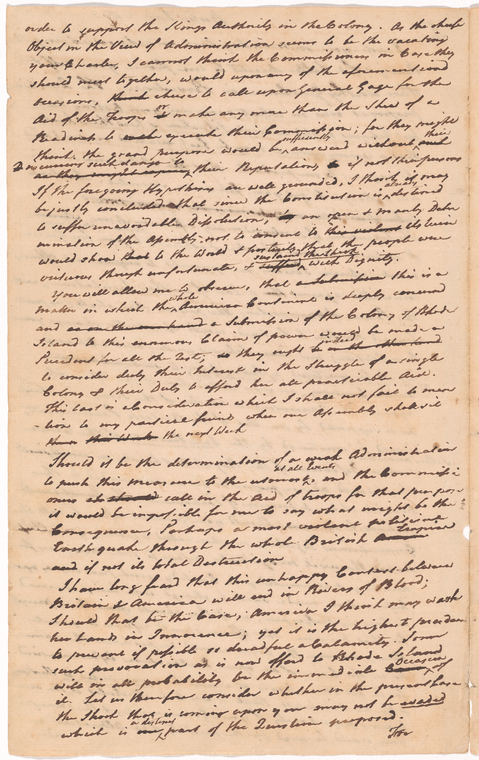 order to support the Kings Authority in the Colony. As the chief
Object in the View of Administration seems to be the vacating
your Charter, I cannot think the Commissioners in Case they
should meet together, would upon any of the aforementiond
Occasions, chuse to call upon General Gage for the
Aid of the Troops or make any more than the Shew of a
Readiness to execute their Commission; for they might
think the grand purpose would be sufficiently answerd without such
their Reputation, if not their persons
If the foregoing Hypothesis are well grounded, I think it may
be justly concluded that since the Constitution is already destined
to suffer unavoidable Dissolution, an open & manly Deter
mination of the Assembly not to consent to its ruin
would shew to the World & posterity that the people were
virtuous though unfortunate, & sustaind the Shock with Dignity.
You will allow me to observe, that this is a
matter in which the whole American Continent is deeply concernd
and a Submission of the Colony of Rhode
Island to this enormous Claim of power would be made a
Precedent for all the rest; they ought indeed
to consider deeply their Interest in the Struggle of a single
Colony & their Duty to afford her all practicable Aid.
This last is a Consideration which I shall not fail to men
tion to my particular friends when our Assembly shall sit
the next Week
Should it be the determination of a weak Administration
to push this Measure to the utmost at all Events, and the Commissi
oners call in the Aid of troops for that purpose
it would be impossible for me to say what might be the
Consequence, Perhaps a most violent political
Earthquake through the whole British Empire
and if not its total Destruction
I have long feard that this unhappy Contest between
Britain & America will end in Rivers of Blood;
Should that be the Case, America I think may wash
her hands in Innocence; yet it is the highest prudence
to prevent if possible so dreadful a Calamity. Some
such provocation as is now offerd to Rhode Island
will in all probability be the immediate Occasion of
it. Let us therefore consider whether in the present Case
the Shock that is coming upon you may not be evaded
which is a distinct part of the Question proposed.
For